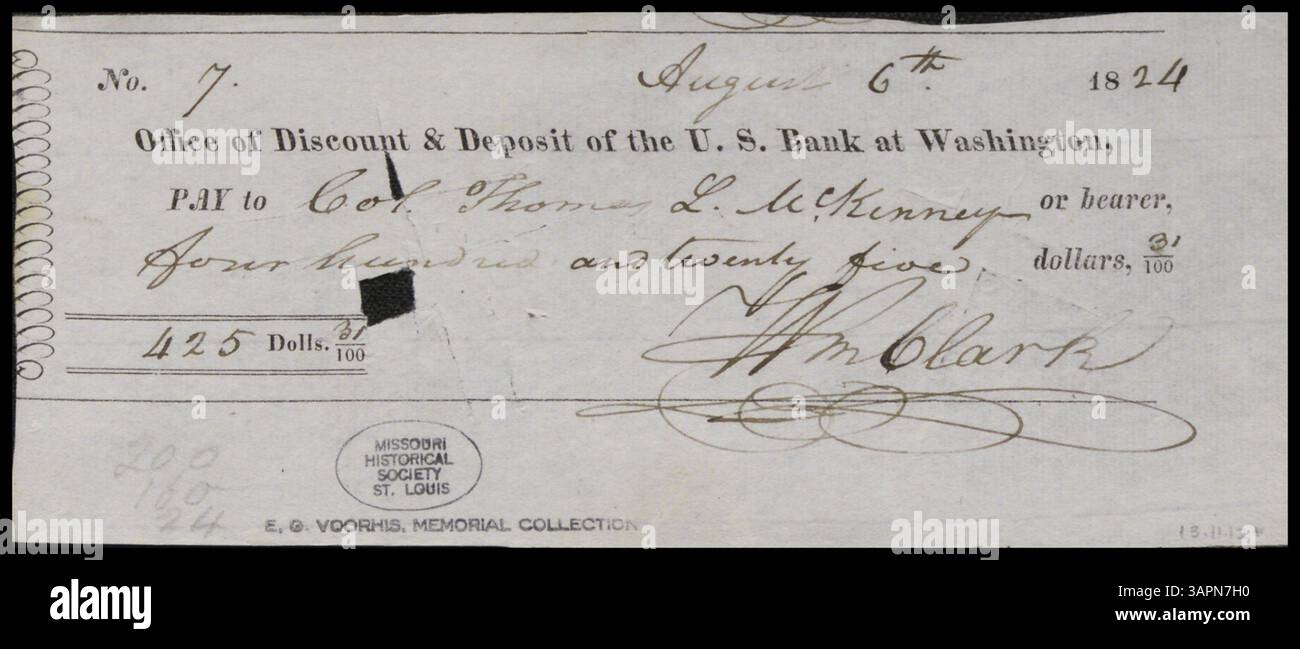 No. 7. August 6th. 1824
Office of Discount & Deposit of the U. S. Bank at Washington,
PAY to Col. Thomas L. McKenney or bearer,
four hundred and twenty five dollars, 31/100
425 Dolls. 31/100
Wm Clark
200
100
24
MISSOURI
HISTORICAL
SOCIETY
ST. LOUIS
E. G. VOORHIS, MEMORIAL COLLECTION
alamy
Image ID: 3APN7H0
www.alamy.com